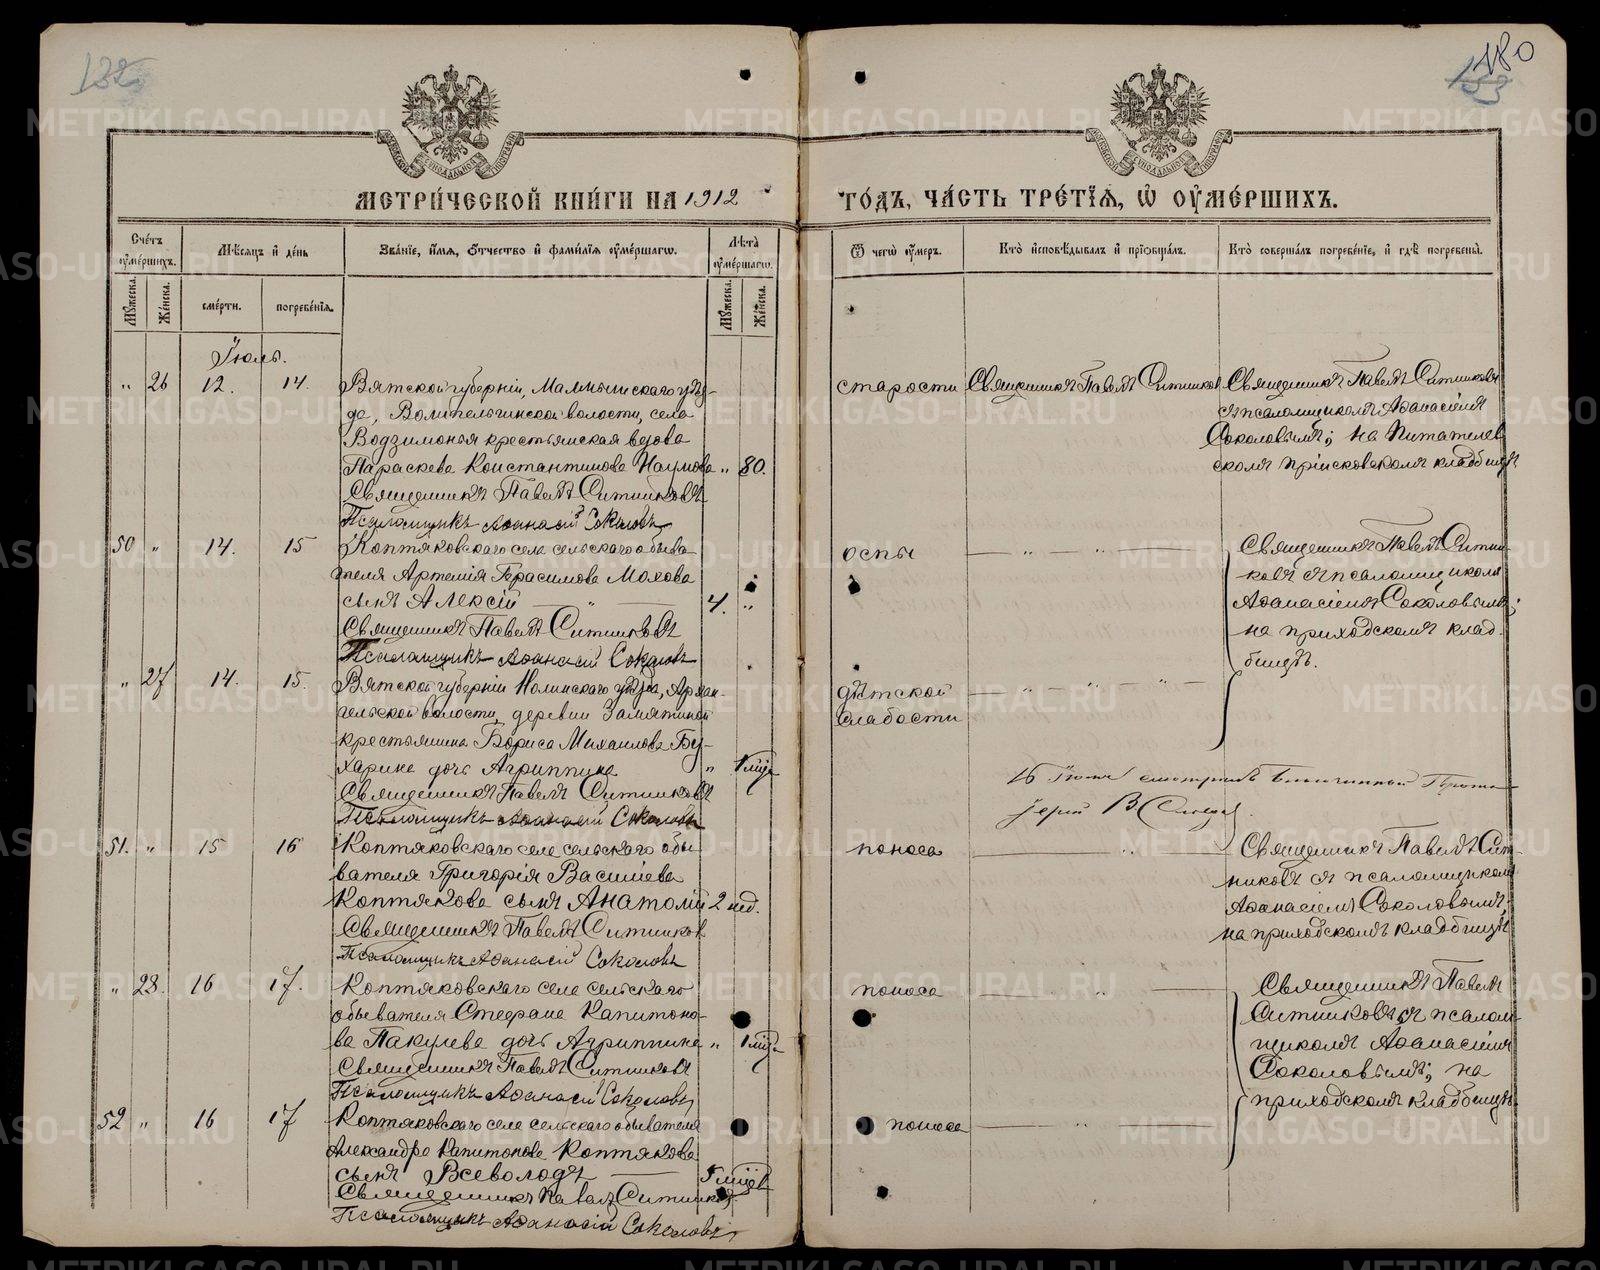 132
180
153
МЕТРИ́ЧЕСКОЙ КНИ́ГИ НА 1912
ГО́ДЪ, ЧА́СТЬ ТРЕ́ТІЯ, Ѡ ОУМЕ́РШИХЪ.
Сче́тъ оуме́ршихъ.
Мѣ́сяцъ и де́нь
Зва́ніе, и́мя, о́тчество и фами́лія оуме́ршагѡ.
Лѣ́та оуме́ршагѡ.
Ѿ чегѡ̀ оу́меръ.
Кто̀ исповѣ́дывалъ и пріобща́лъ.
Кто̀ соверша́лъ погребе́ніе, и гдѣ̀ погребены̀.
Му́жеска.
Же́нска.
сме́рти.
погребе́нія.
Му́жеска.
Же́нска.
Іюль.
" 26 12. 14. Вятской губерніи, Малмыжскаго уѣз-
да, Волипельгинской волости, села
Водзимонья крестьянская вдова
Параскева Константинова Наумова " 80.
Священникъ Павелъ Ситниковъ
Псаломщикъ Аѳанасій Соколовъ
старости
Священникъ Павелъ Ситников
Священникъ Павелъ Ситниковъ
съ псаломщикомъ Аѳанасіемъ
Соколовымъ; на
скомъ пріисковскомъ кладбищѣ
50 " 14. 15 Коптяковскаго села сельскаго обыва
теля Артемія Герасимова Махова
сынъ Алексій — " — 4. "
Священникъ Павелъ Ситниковъ
Псаломщикъ Аѳанасій Соколовъ
оспы — " — " —
Священникъ Павелъ Ситни-
ковъ съ псаломщикомъ
Аѳанасіемъ Соколовымъ;
на приходскомъ клад-
бищѣ.
" 27 14. 15. Вятской губерніи Нолинскаго уѣзда, Архан-
гельской волости, деревни Замятиной
крестьянина Бориса Михаилова Бу-
харина дочь Агриппина " 1 мѣс.
Священникъ Павелъ Ситниковъ
Псаломщикъ Аѳанасій Соколовъ
дѣтской — " — " — " —
слабости
16 Іюля смотрилъ Благочинный Прото-
іерей В
51. " 15 16 Коптяковскаго села сельскаго обы
вателя Григорія Васильева
Коптякова сынъ Анатолій 2 нед.
Священникъ Павелъ Ситников
Псаломщикъ Аѳанасій Соколовъ
поноса — " —
Священникъ Павелъ Сит-
никовъ съ псаломщикомъ
Аѳанасіемъ Соколовымъ;
на приходскомъ кладбищѣ
" 28. 16 17. Коптяковскаго села сельскаго
обывателя Стефана Капитоно-
ва Пакулева дочь Агриппина " 1 мѣс.
Священникъ Павелъ Ситниковъ
Псаломщикъ Аѳанасій Соколовъ
поноса — " —
Священникъ Павелъ
Ситниковъ съ псалом-
щикомъ Аѳанасіемъ
Соколовымъ; на
приходскомъ кладбищѣ
52 " 16 17 Коптяковскаго села сельскаго обывателя
Александра Капитонова Коптякова
сынъ Всеволодъ — 5 мѣсяц.
Священникъ Павелъ Ситников
Псаломщикъ Аѳанасій Соколовъ
поноса — " —
METRIKI.GASO-URAL.RU